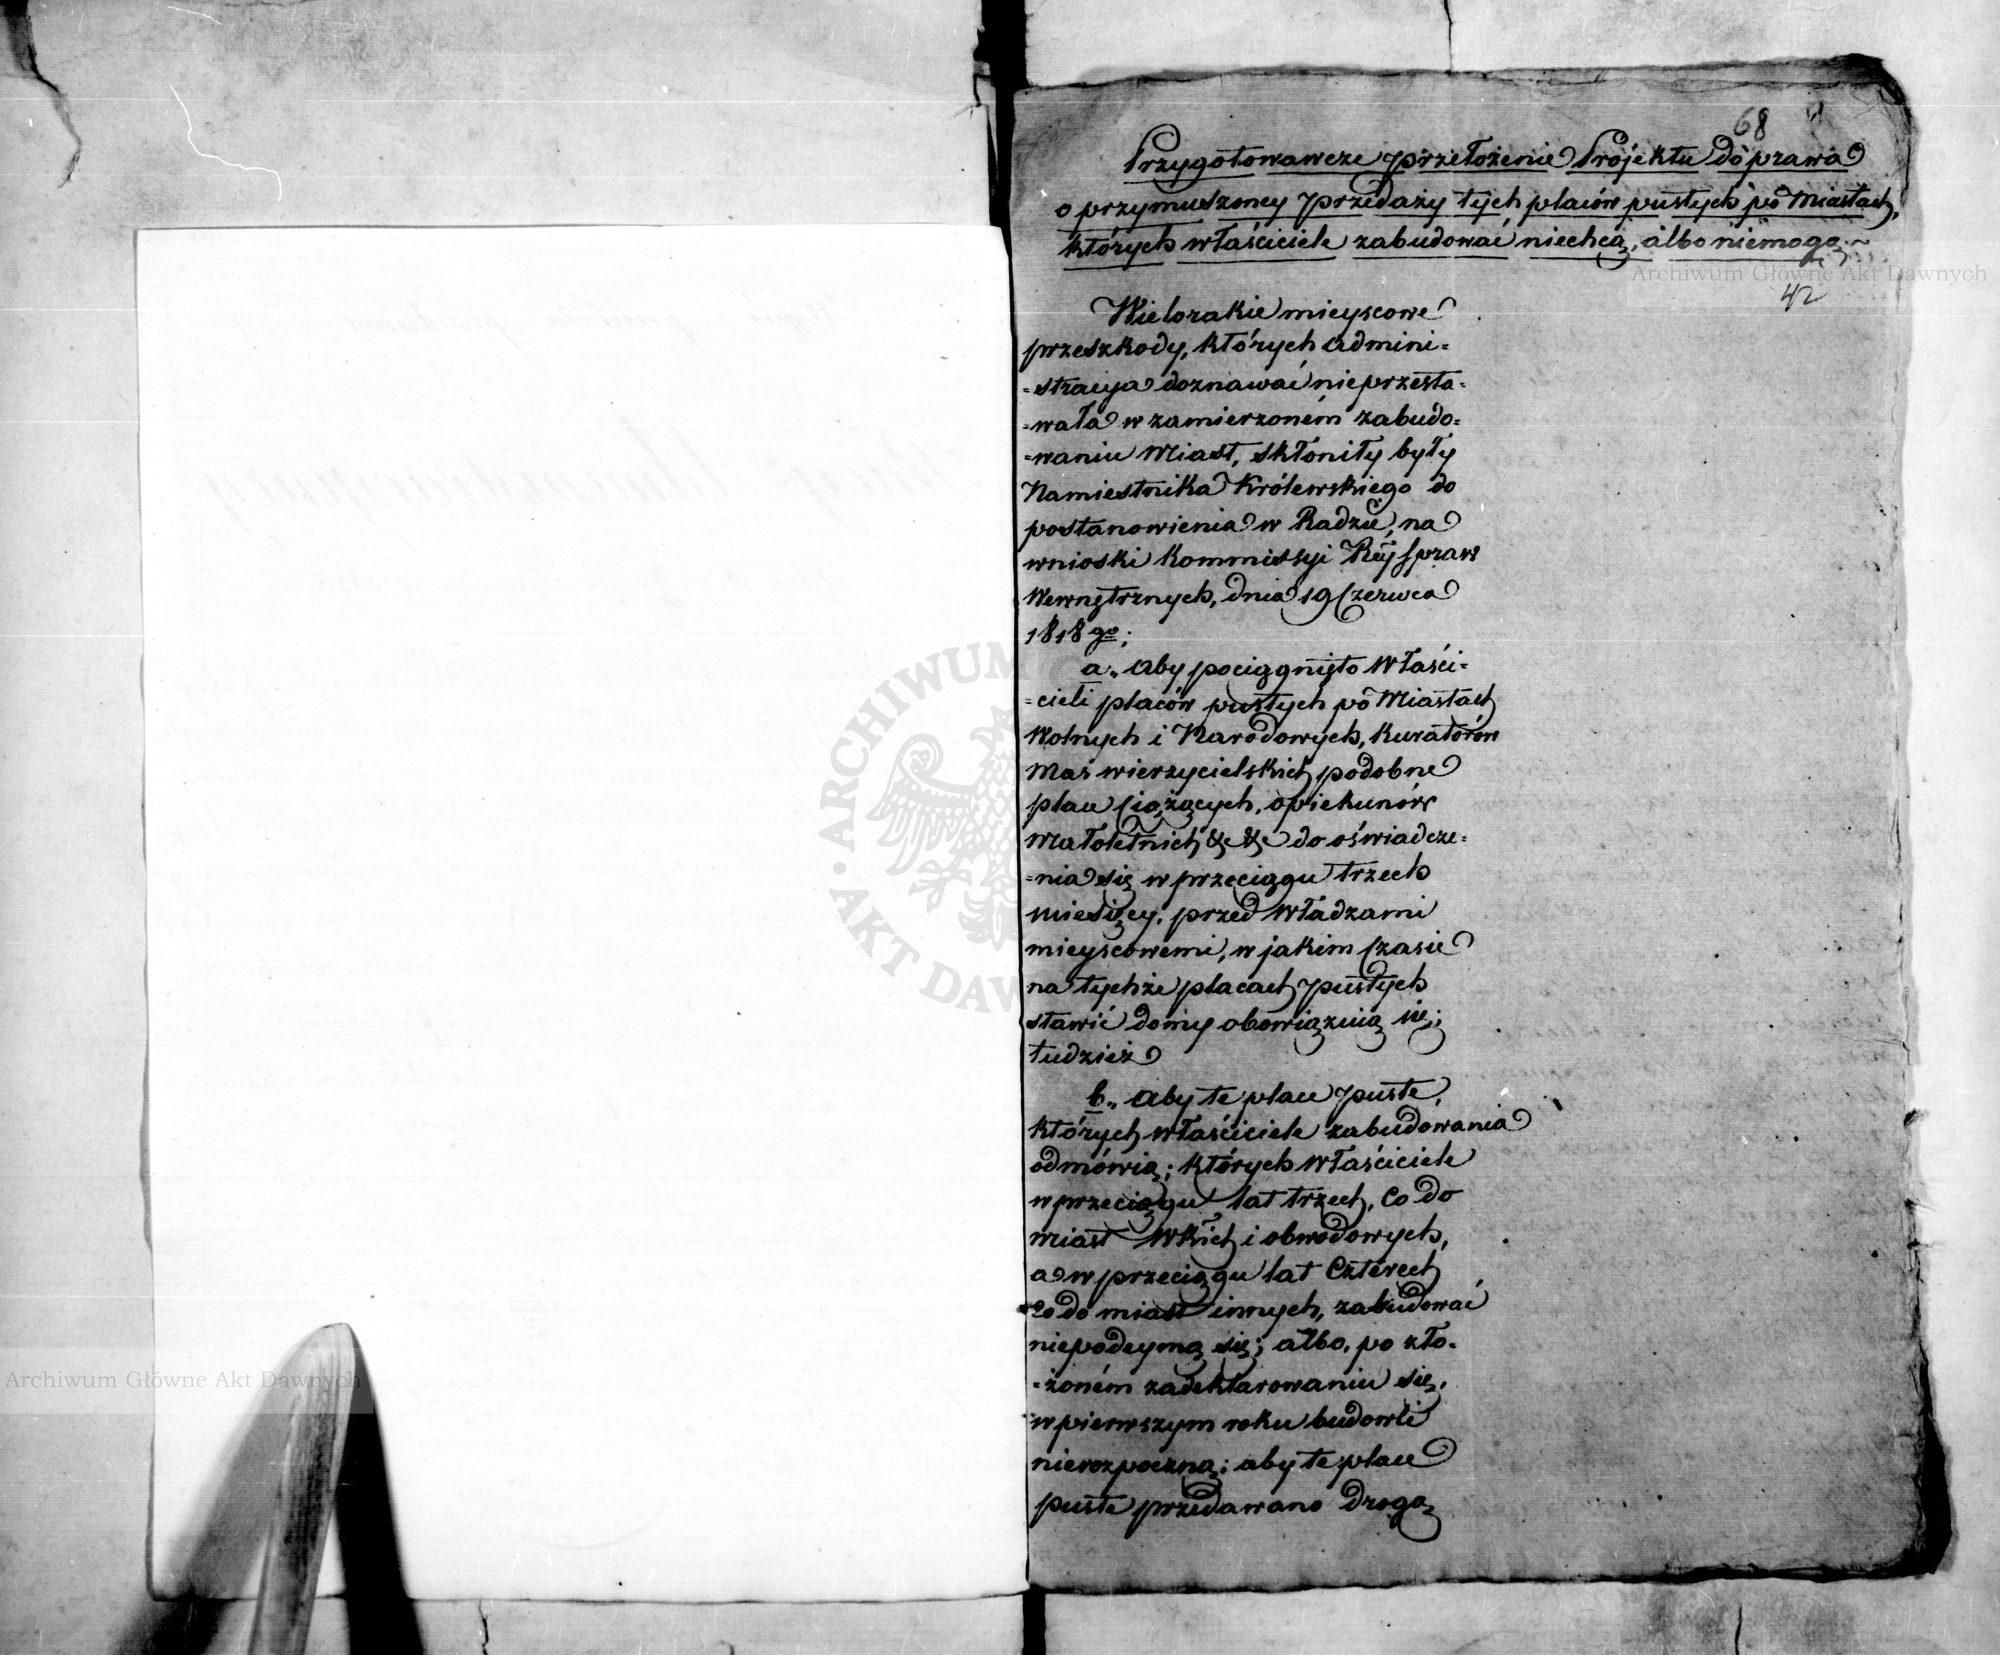 68
Przygotowawcze przełożenie Projektu do prawa
o przymuszoney przedaży tych placów pustych po Miastach,
których właściciele zabudować niechcą, albo niemogą.
42
Wielorakie mieyscowe
przeszkody, których admini=
=stracya doznawać nieprzesta=
=wała w zamierzoném zabudo=
=waniu Miast, skłoniły były
Namiestnika Królewskiego do
postanowienia w Radzie, na
wnioski Kommissyi Rźij Spraw
Wewnętrznych, dnia 19 Czerwca
1818 go;
a., aby pociągnięto Właści=
=cieli placów pustych po Miastach
Wolnych i Narodowych, Kuratorów
Mas wierzycielskich podobne
place ciążących, opiekunów
Małoletnich &c &c do oświadcze=
=nia się w przeciągu trzech
miesięcy, przed Władzami
mieyscowemi, w jakim czasie
na tychże placach pustych
stawić domy obowiązuią się;
tudzież
b., aby te place puste,
których właściciele zabudowania
odmówią; których właściciele
w przeciągu lat trzech, co do
miast Wkich i obwodowych,
a w przeciągu lat czterech
co do miast innych, zabudować
niepodeymą się; albo, po zło=
=żoném zadeklarowaniu się,
w pierwszym roku budowli
nierozpoczną; aby te place
puste przedawano drogą
Archiwum Główne Akt Dawnych
Archiwum Główne Akt Dawnych
ARCHIWUM
AKT DAW